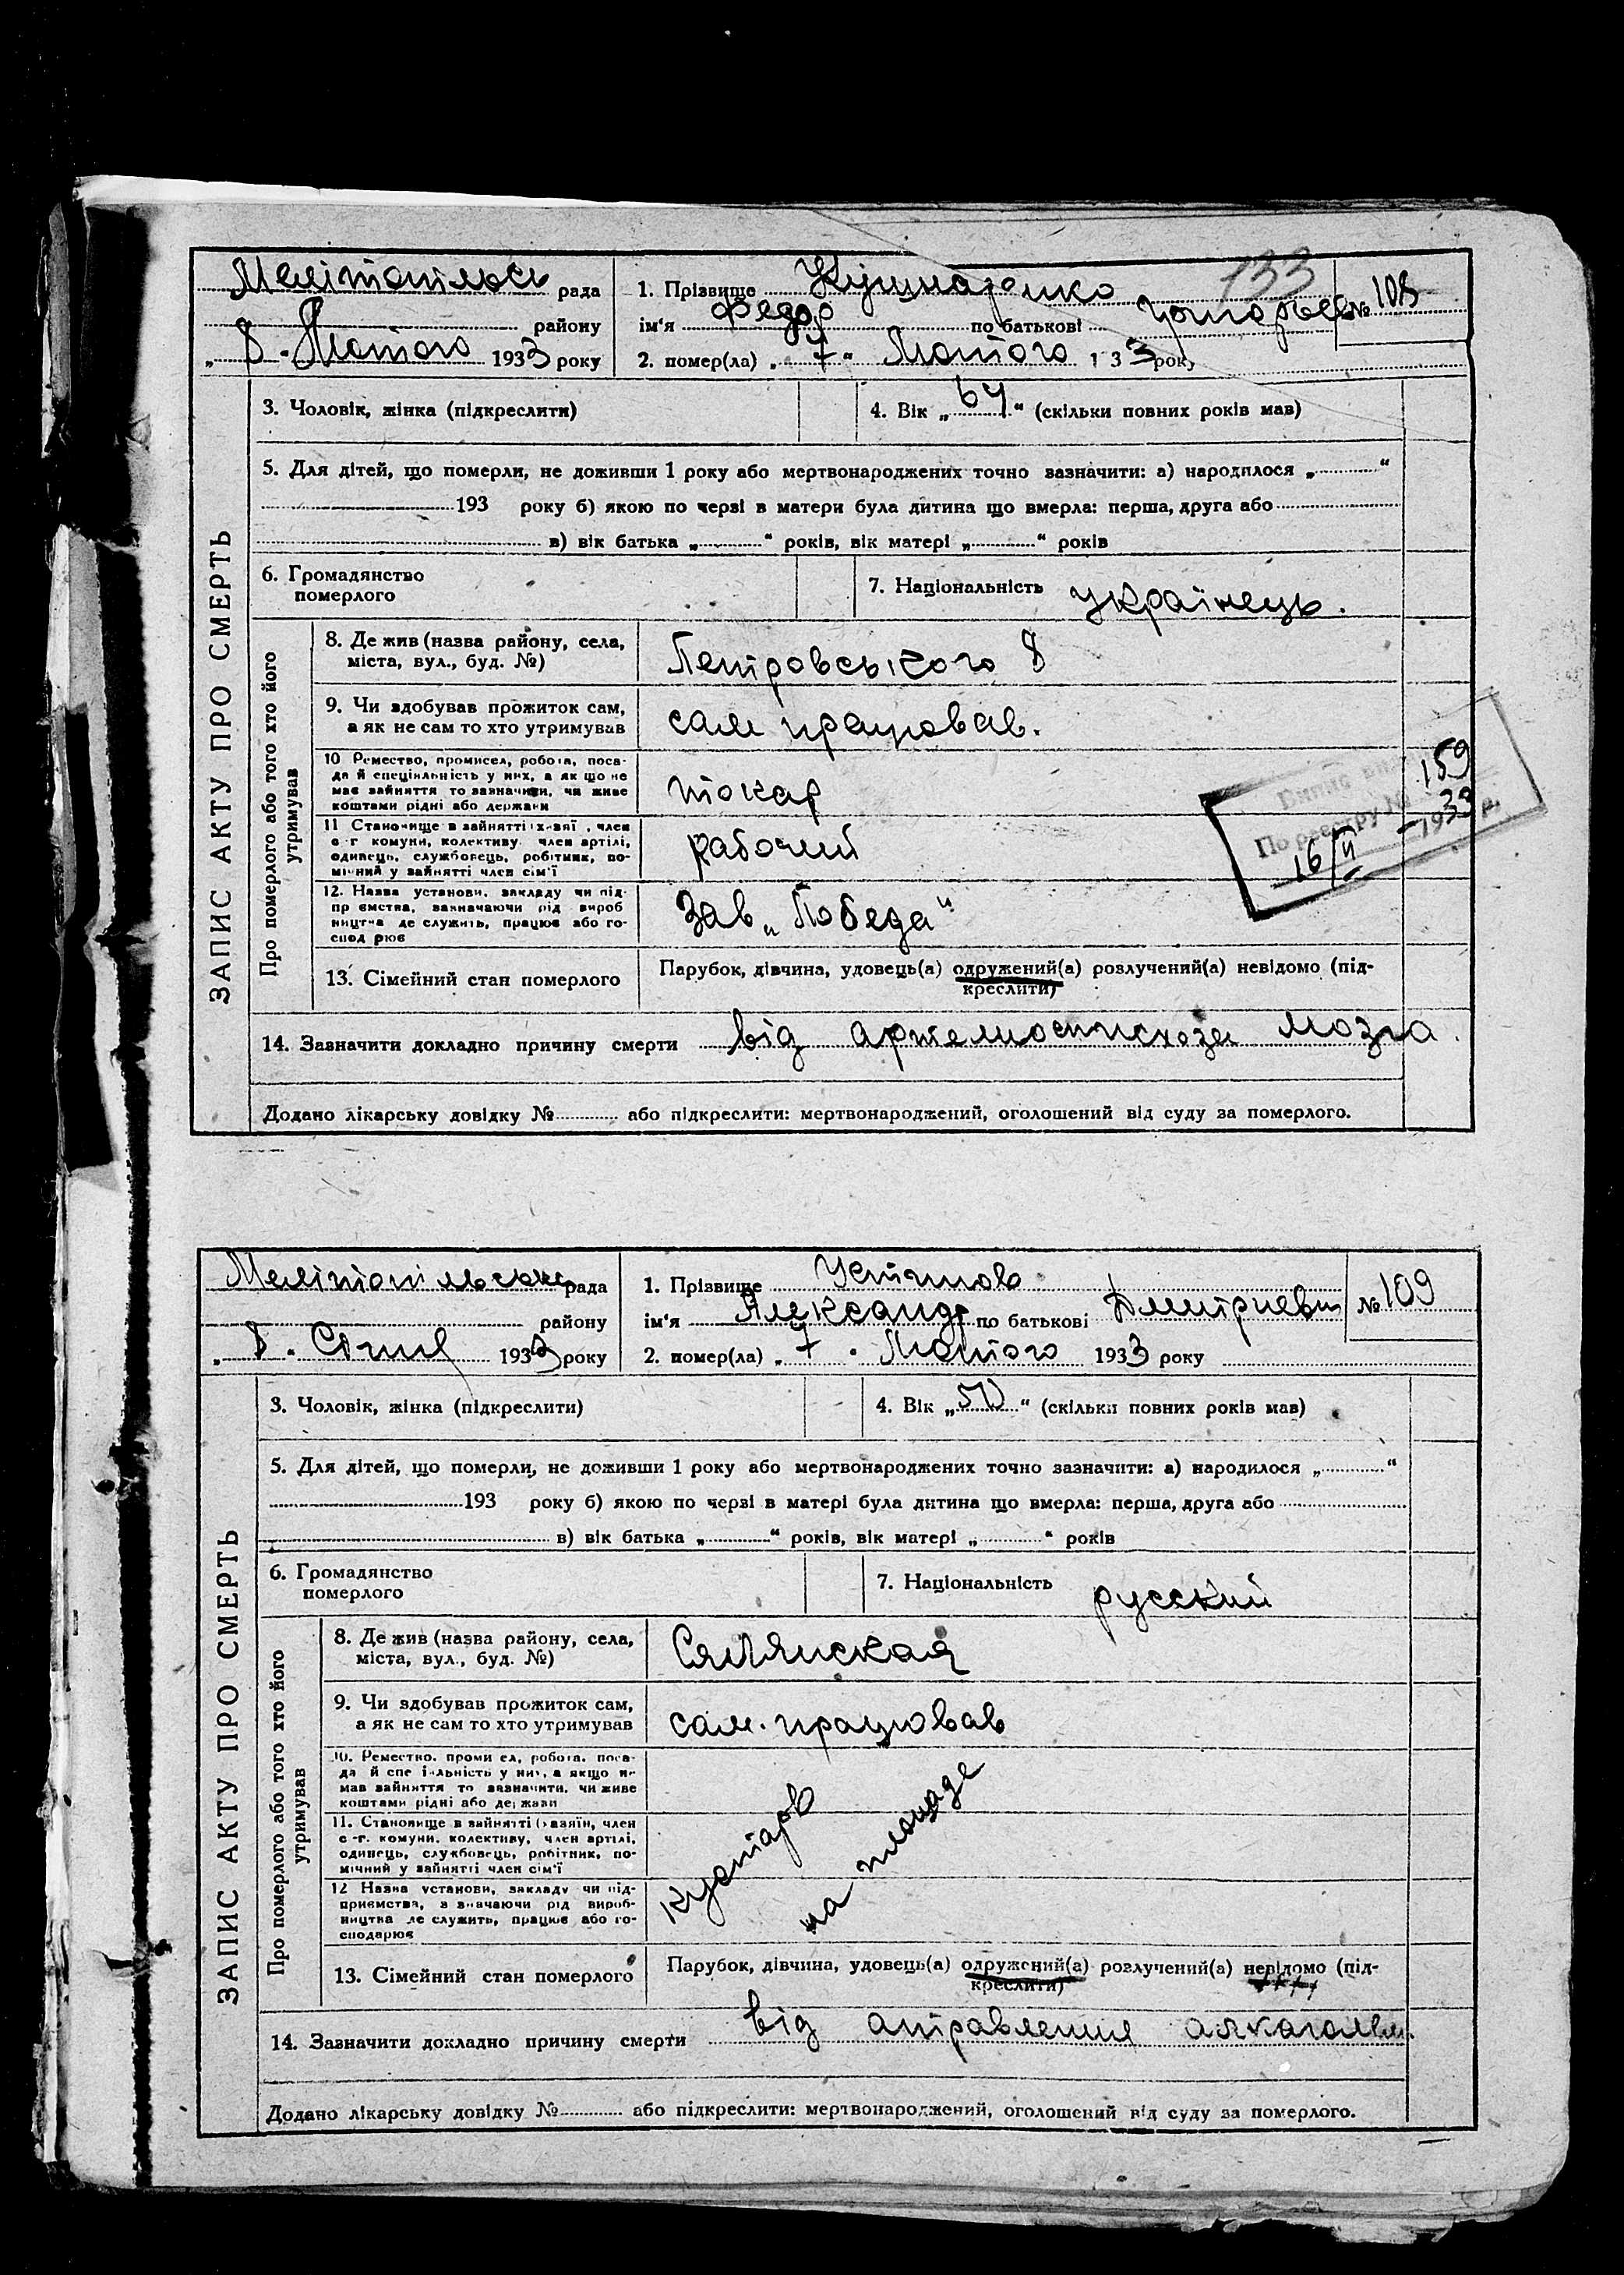 133
Мелітопільсь рада
1. Прізвище Кушнаренко
№ 108
району
ім'я Федор по батькові Григорьев
„ 8 „ Лютого 1933 року
2. помер(ла) „ 7 “ Лютого 1 33 року
ЗАПИС АКТУ ПРО СМЕРТЬ
3. Чоловік, жінка (підкреслити)
4. Вік „ 64 “ (скільки повних років мав)
5. Для дітей, що померли, не доживши 1 року або мертвонароджених точно зазначити: а) народилося „ “
193 року б) якою по черзі в матери була дитина що вмерла: перша, друга або
в) вік батька „ “ років, вік матері „ “ років
6. Громадянство
померлого
7. Національність українець.
Про померлого або того хто його
утримував
8. Де жив (назва району, села,
міста, вул., буд. №)
Петровського 8
9. Чи здобував прожиток сам,
а як не сам то хто утримував
сам працював.
10 Ремество, промисел, робота, поса-
да й спеціяльність у них, а як що не
має зайняття то зазначити, чи живе
коштами рідні або держави
токар
11 Становище в зайнятті член
с г комуни, колективу член артілі,
одинець, службовець, робітник, по-
мічний у зайнятті член сім'ї
рабочий
12. Назва установи, закладу чи під-
пр ємства, зазначаючи рід вироб
ництва де служить, працює або го-
спод рює
Зав „Победа“
13. Сімейний стан померлого
Парубок, дівчина, удовець(а) одружений(а) розлучений(а) невідомо (під-
креслити)
14. Зазначити докладно причину смерти від мозга.
Додано лікарську довідку № або підкреслити: мертвонароджений, оголошений від суду за померлого.
По реєстру № 159
16/II 1933 р.
Мелітопільська рада
1. Прізвище Устинов
№ 109
району
ім'я Александр по батькові Дмитриевич
„ 8 „ Січня 1933 року
2. помер(ла) „ 7 „ Лютого 1933 року
ЗАПИС АКТУ ПРО СМЕРТЬ
3. Чоловік, жінка (підкреслити)
4. Вік „ 50 “ (скільки повних років мав)
5. Для дітей, що померли, не доживши 1 року або мертвонароджених точно зазначити: а) народилося „ “
193 року б) якою по черзі в матері була дитина що вмерла: перша, друга або
в) вік батька „ “ років, вік матері „ “ років
6. Громадянство
померлого
7. Національність русский
Про померлого або того хто його
утримував
8. Де жив (назва району, села,
міста, вул., буд. №)
9. Чи здобував прожиток сам,
а як не сам то хто утримував
сам. працював
10. Ремество, проми ел, робота, поса-
да й спе іяльність у них, а якщо не
мав зайняття то зазначити, чи живе
коштами рідні або держави
11. Становище в зайнятті (хазяїн, член
с -г. комуни, колективу, член артілі,
одинець, службовець, робітник, по-
мічний у зайнятті член сім'ї
12 Назва установи, закладу чи під-
приємства, зазначаючи рід вироб-
ництва де служить, працює або го-
сподарює
кустарь
на площаде
13. Сімейний стан померлого
Парубок, дівчина, удовець(а) одружений(а) розлучений(а) невідомо (під-
креслити)
14. Зазначити докладно причину смерти від атравления алкаголем.
Додано лікарську довідку № або підкреслити: мертвонароджений, оголошений від суду за померлого.